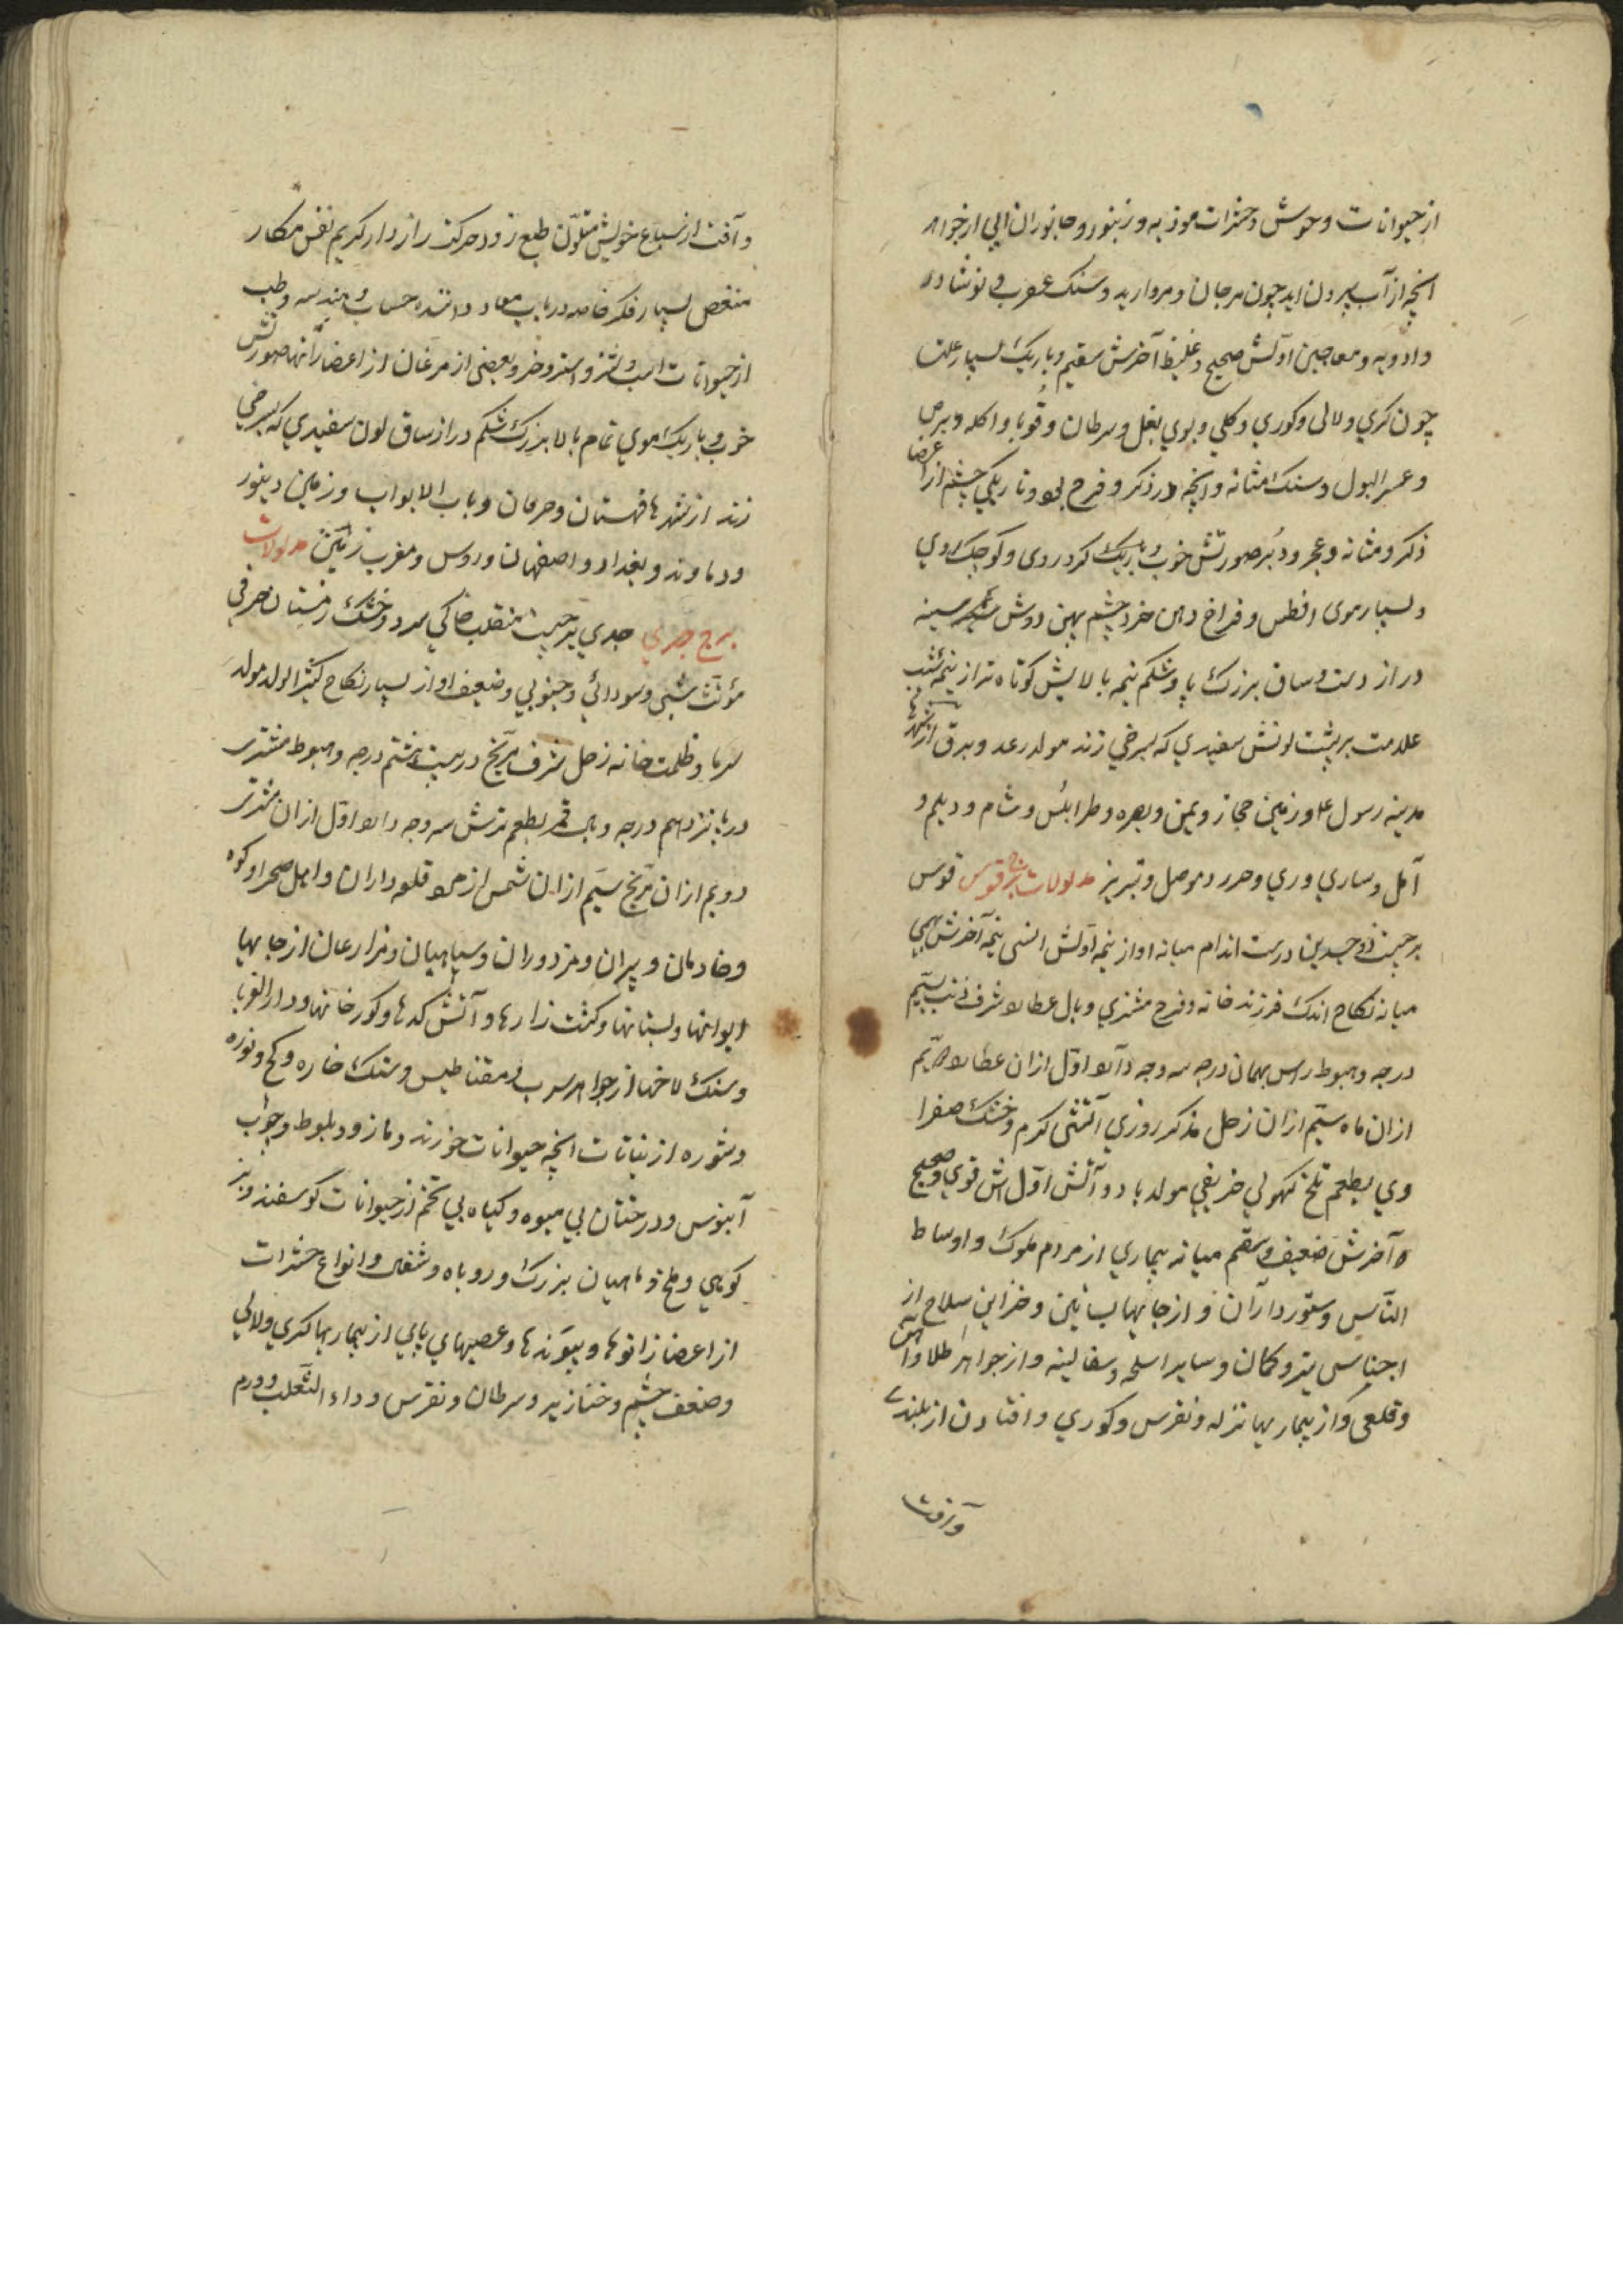 از حیوانات وحوش و حشرات موذیه و زنبور و جانوران آبی از جواهر
انچه از آب بیرون اید چون مرجان و مروارید و سنک عقرب و نوشادر
و ادویه و معاجین اوّلش صحیح و غلیظ آخرش سقیم و باریک بسیار علت
چون کری و لالی و کوری و کلی و بوی بغل و سرطان و قوبا و اکله و برص
و عسر البول و سنک مثانه و انچه در ذکر و فرج بود و تاریکی چشم از اعضا
ذکر و مثانه و عجز و دُبر صورتش خوب و باریک کرد روی و کوچک روی
و بسیار موی افطس و فراخ دهن خرد چشم پهن دوش ستبر سینه
دراز دست و ساق بزرک پا و شکم نیمه بالایش کوتاه تر از نیمه شیب
علامت بر پشت لونش سفیدی که بسرخی زند مولد رعد و برق از شهرها
مدینه رسول ع و زمین حجاز و یمن و بصره و طرابلس و شام و دیلم و
آمل و ساری و ری و موصل و تبریز مدلولات برج قوس قوس
برجیست ذو جسدین درست اندام میانه اواز نیمه اوّلش انسی نیمه آخرش بهیمی
میانه نکاح اندک فرزند خانه و فرح مشتری وبال عطارد شرف ذنب سیّم
درجه و هبوط راس بهمان درجه سه وجه دارد اوّل ازان عطارد دویّم
ازان ماه سیّم ازان زحل مذکر روزی آتشی کرم و خشک صفرا
وی بطعم تلخ کهولی خریفی مولد باد و آتش اوّلش قوی و صحیح
و آخرش ضعیف و سقیم میانه بیماری از مردم ملوک و اوساط
النّاس و ستور داران و از جایها بساتین و خزاین سلاح از
اجناس تیر و کمان و سایر اسلحه و سفالینه و از جواهر طلا و آهن
و قلعی و از بیماریها نزله و نقرس و کوری و افتادن از بلندی
و آفت
و آفت از سباع خویش متلوّن طبع زود حرکت راز دار کریم نفس مکار
منغص بسیار فکر خاصه در باب معاد داننده حساب و هندسه و طب
از حیوانات اسب و شتر و استر و خر و بعضی از مرغان از اعضا رانها صورتش
خوب و باریک موی تمام بالا بزرک شکم دراز ساق لون سفیدی که بسرخی
زند از شهرها قهستان و باب الابواب و زمین دینور
و دماوند و بغداد و اصفهان و روس و مغرب زمین مدلولات
برج جدی جدی برجیست منقلب خاکی سرد و خشک زمستان حرفی
مؤنّث شبی و سودائی و جنوبی و ضعیف اواز بسیار نکاح کثیر الولد مولد
سرما و ظلمت خانه زحل شرف مرّیخ در بیست و هشتم درجه و هبوط مشتری
در پانزدهم درجه وبال قمر بطعم ترش سه وجه دارد اوّل ازان مشتری
دویم ازان مرّیخ سیّم ازان شمس از مردم قلعه داران و اهل صحرا و کوه
و خادمان و پیران و مزدوران و سپاهیان و مزارعان از جایها
ایوانها و بستانها و کشت زارها و آتش کدها و کورخانها و دار الغربا
و سنک لاخها از جواهر سرب و مقناطیس و سنک خاره و کچ و نوره
و شوره از نباتات انچه حیوانات خورند و مازو و بلوط و چوب
آبنوس و درختان بی میوه و کیاه بی تخم از حیوانات کوسفند و بز
کوهی و ملخ و ماهیان بزرک و روباه و شغال و انواع حشرات
از اعضا زانوها و پیوندها و عصبهای پایی از بیماریها کری و لالی
و ضعف چشم و خنازیر و سرطان و نقرس و داء الثّعلب و ورم